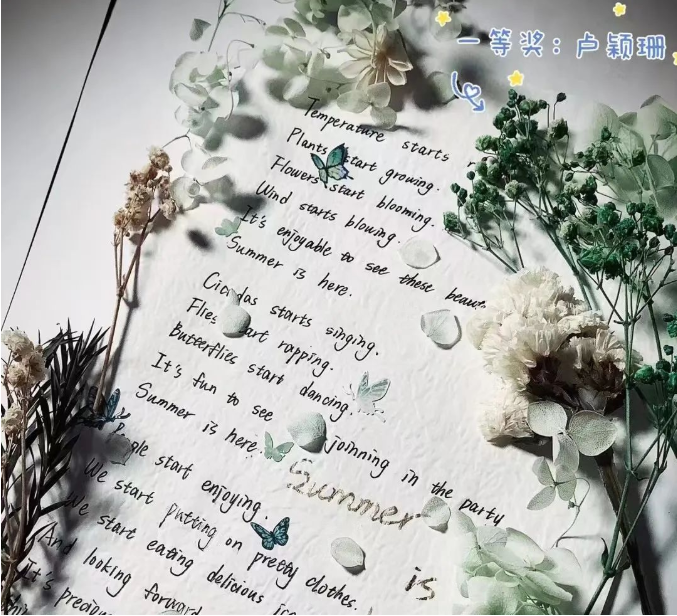 一等奖：卢颖珊
Temperature starts
Plants start growing.
Flowers start blooming.
Wind starts blowing.
It's enjoyable to see these
Summer is here.
Cicadas starts singing.
Flies start rapping.
Butterflies start dancing.
It's fun to see joinning in the party
Summer is here.
People start enjoying.
We start putting on pretty clothes.
We start eating delicious
And looking forward
It's
Summer
is